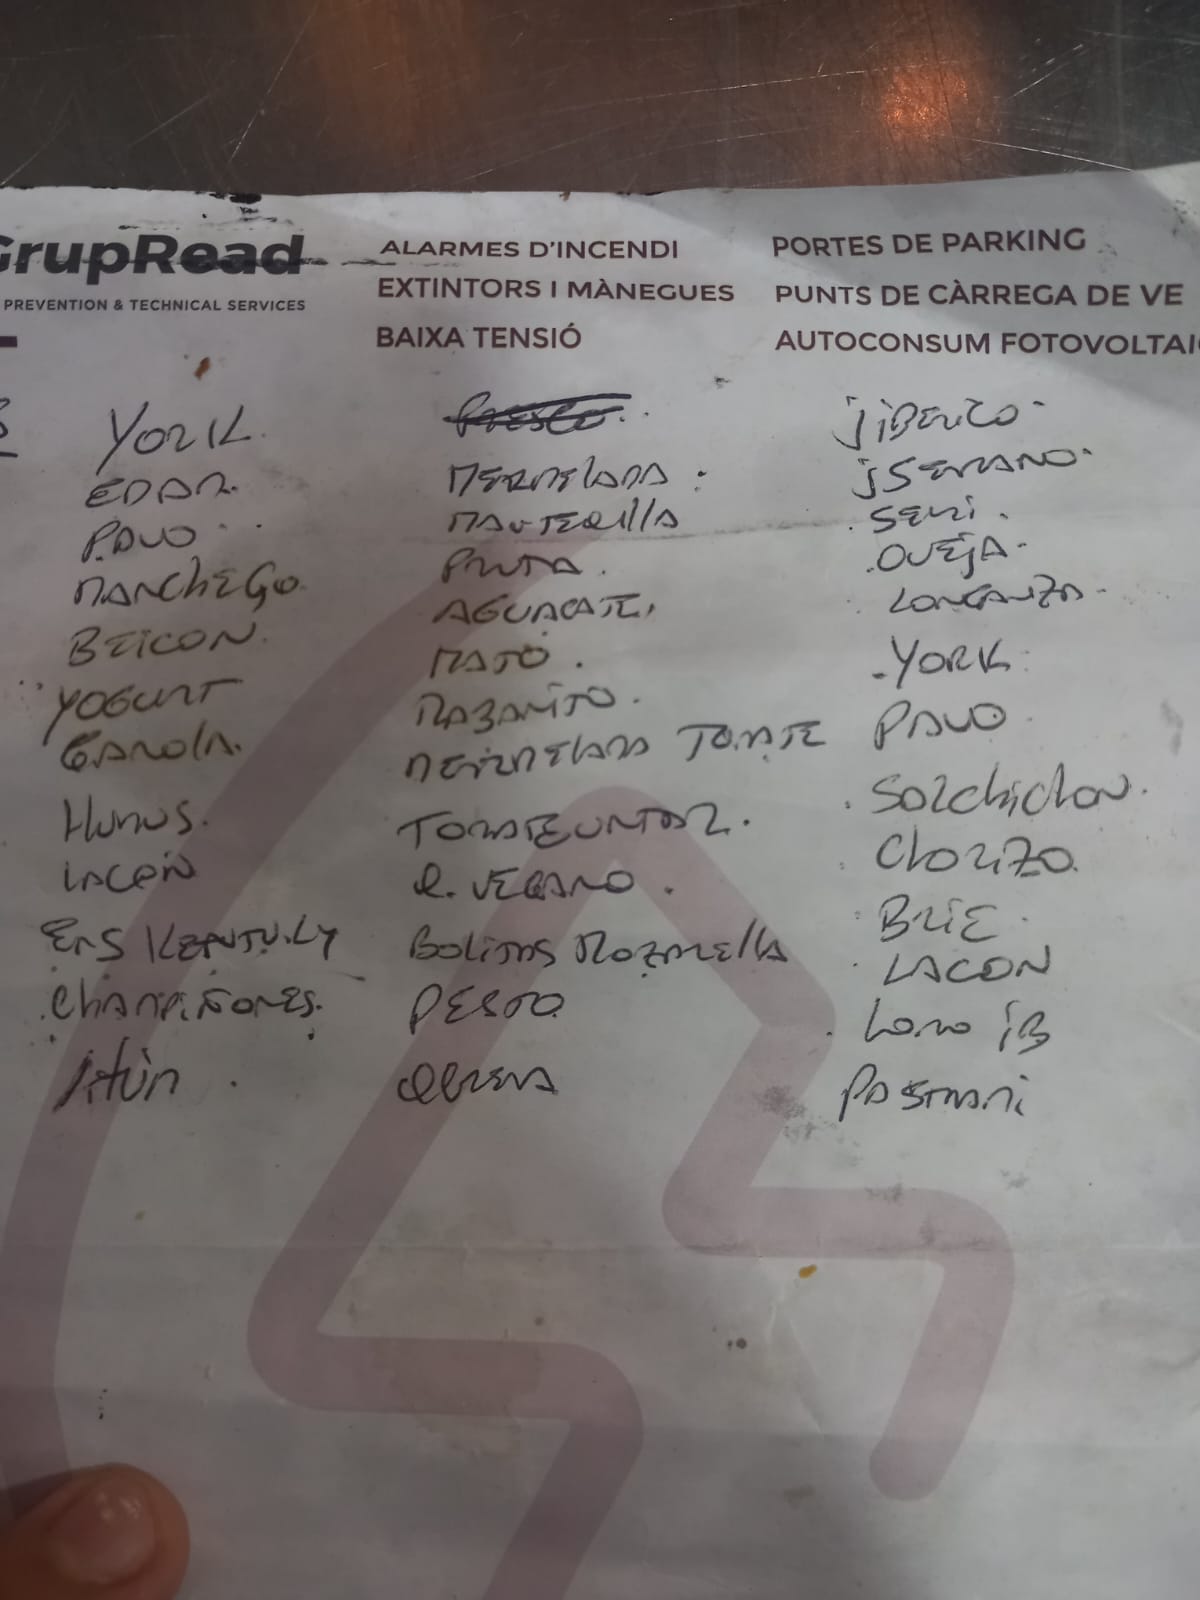 GrupRead
PREVENTION & TECHNICAL SERVICES
ALARMES D'INCENDI
EXTINTORS I MÀNEGUES
BAIXA TENSIÓ
PORTES DE PARKING
PUNTS DE CÀRREGA DE VE
AUTOCONSUM FOTOVOLTAI
YORK.
EDAM.
PAVO
MANCHEGO.
BEICON.
YOGURT
GANOLA.
HUMUS.
LACÓN
ENS KENTUKY
CHAMPIÑONES.
Atún
MERMELADA
MANTEQUILLA
FRUTA.
AGUACATE.
MATÓ.
RABANITO.
MERMELADA TOMATE
TOMATE UNTAR.
Q. VEGANO.
BOLITAS MOZARELLA
PESTO
jiBERICO
jSERRANO.
SEMI.
OVEJA.
LONGANIZA.
YORK
PAVO
Salchichon.
Chorizo.
BRIE.
LACON
Lomo iB
Pastrami